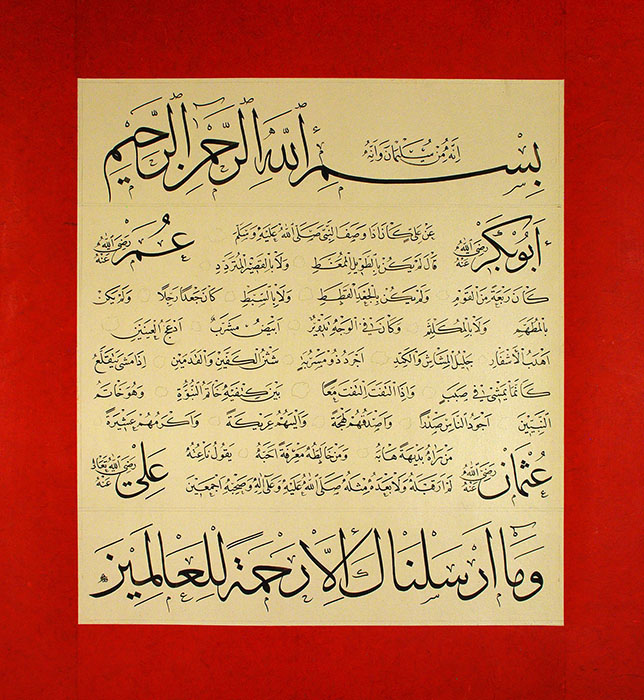 انه من سليمان وانه
بسم الله الرحمن الرحيم
ابوبكر رضى الله عنه
عمر رضى الله عنه
عن على كان اذا وصف النبى صلى الله عليه وسلم
قال لم يكن بالطويل الممغط ولا بالقصير المتردد
كان ربعة من القوم ولم يكن بالجعد القطط ولا بالسبط كان جعدا رجلا ولم يكن
بالمطهم ولا بالمكلثم وكان فى الوجه تدوير ابيض مشرب ادعج العينين
اهدب الاشفار جليل المشاش والكتد اجرد ذو مسربة شثن الكفين والقدمين اذا مشى يتقلع
كانما يمشى فى صبب واذا التفت التفت معا بين كتفيه خاتم النبوة وهو خاتم
النبيين اجود الناس صدرا واصدقهم لهجة والينهم عريكة واكرمهم عشيرة
من راه بديهة هابه ومن خالطه معرفة احبه يقول ناعته
لم ار قبله ولا بعده مثله صلى الله عليه وعلى اله وصحبه اجمعين
عثمان رضى الله عنه
على رضى الله تعالى عنه
وما ارسلناك الا رحمة للعالمين